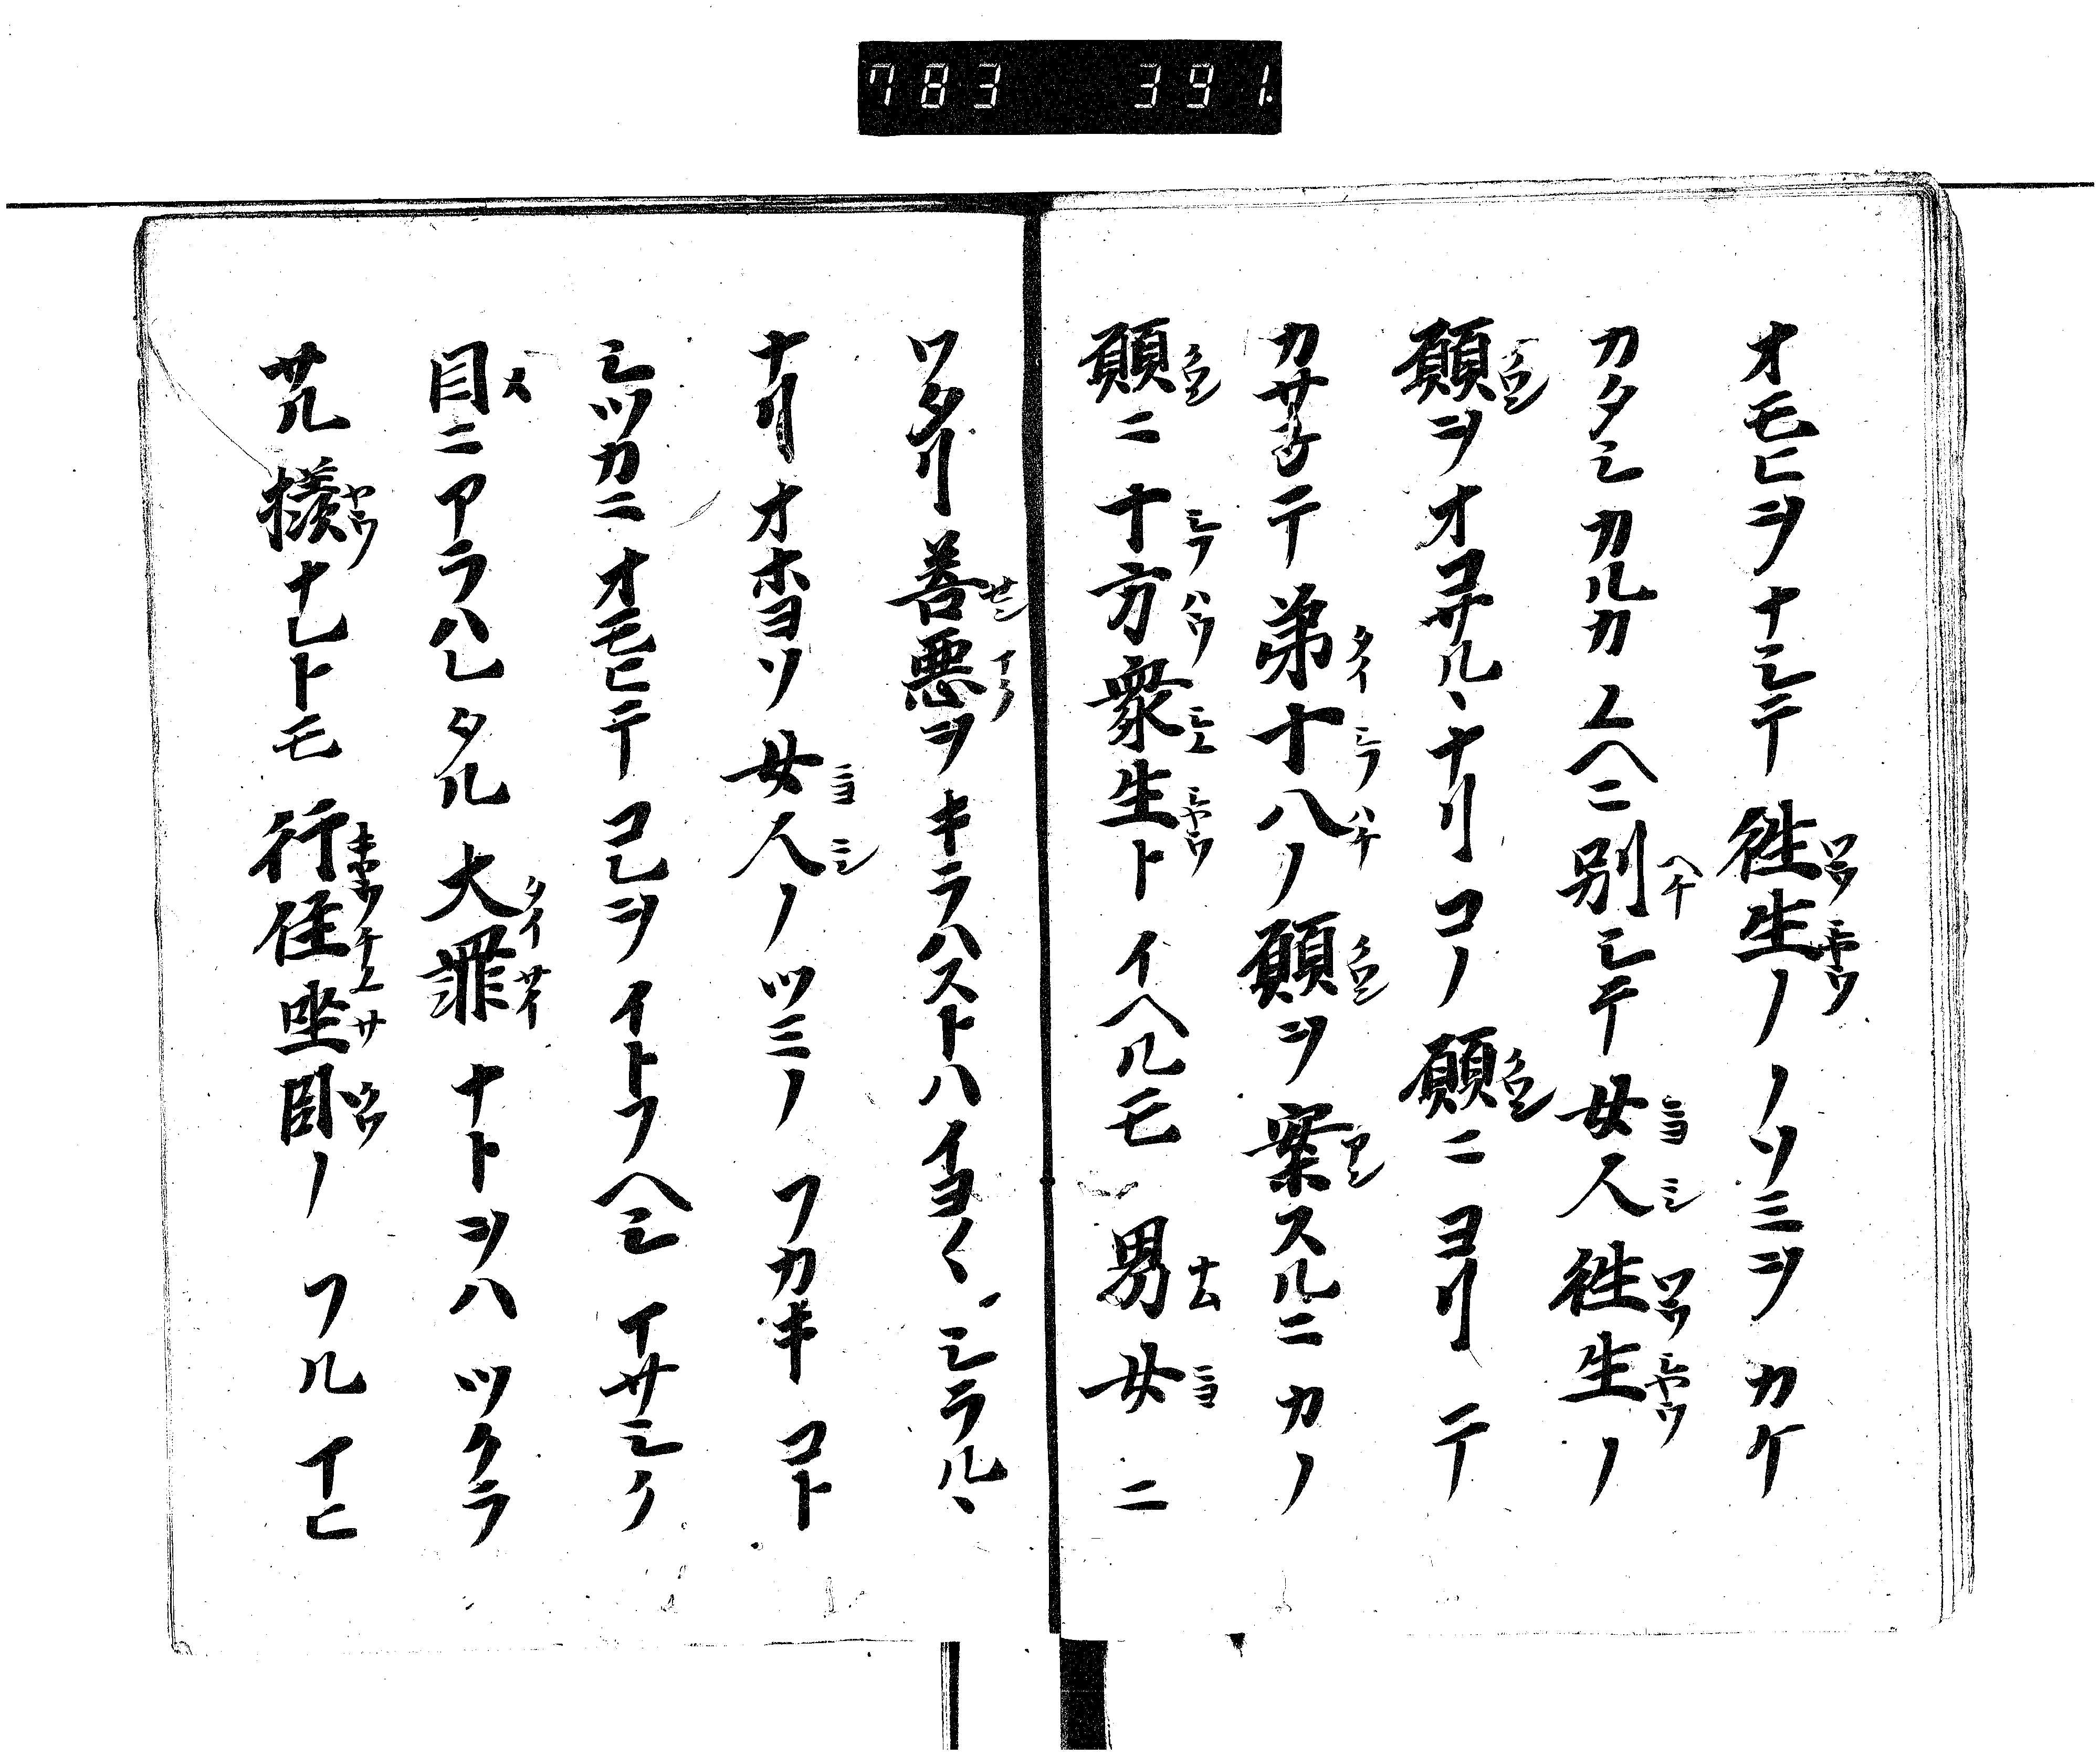 783 391
オモヒヲナシテ往生ノノソミヲカケ
カタシカルカユヘニ別シテ女人往生ノ
願ヲオコサルヽナリコノ願ニヨリテ
カサネテ第十八ノ願ヲ案スルニカノ
願ニ十方衆生トイヘルモ男女ニ
ワタリ善悪ヲキラハストハイヨ〱シラルヽ
ナリオホヨソ女人ノツミノフカキコト
シツカニオモヒテコレヲイトフヘシイサシク
目ニアラハレタル大罪ナトヲハツクラ
サル様ナレトモ行住坐臥ノフルマヒ